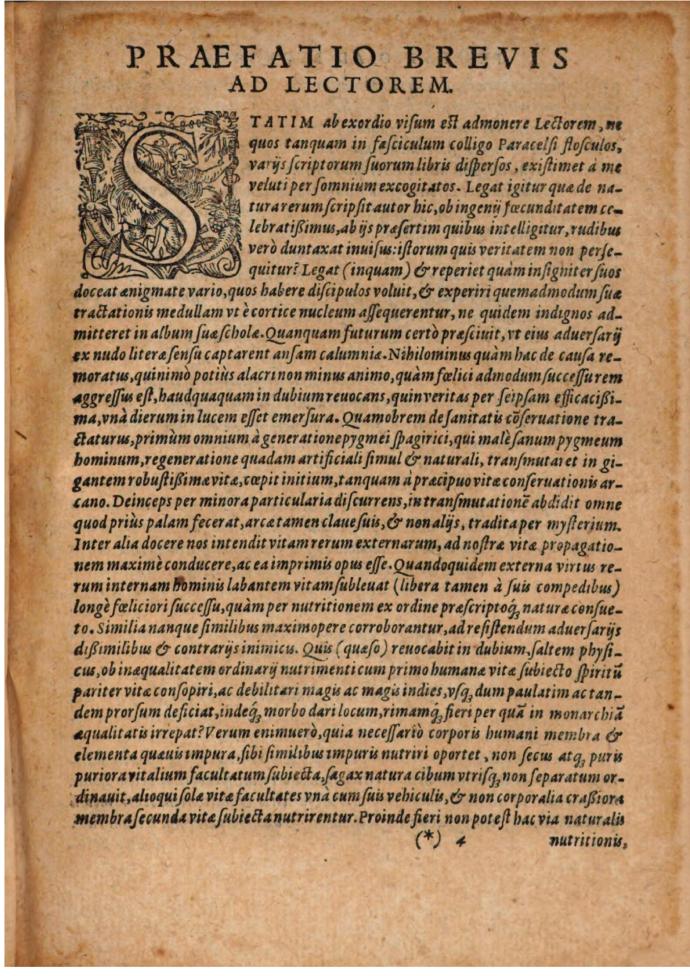 PRAEFATIO BREVIS
AD LECTOREM.
STATIM ab exordio visum est admonere Lectorem, ne
quos tanquam in fasciculum colligo Paracelsi flosculos,
varijs scriptorum suorum libris dispersos, existimet à me
veluti per somnium excogitatos. Legat igitur quæ de na-
tura rerum scripsit autor hic, ob ingenij fœcunditatem ce-
lebratißimus, ab ijs præsertim quibus intelligitur, rudibus
verò duntaxat inuisus: istorum quis veritatem non perse-
quitur? Legat (inquam) & reperiet quàm insigniter suos
doceat ænigmate vario, quos habere discipulos voluit, & experiri quemadmodum suæ
tractationis medullam vt è cortice nucleum assequerentur, ne quidem indignos ad-
mitteret in album suæ scholæ. Quanquam futurum certò præsciuit, vt eius aduersarij
ex nudo literæ sensu captarent ansam calumniæ. Nihilominus quàm hac de causa re-
moratus, quinimò potiùs alacri non minus animo, quàm fœlici admodum successu rem
aggressus est, haudquaquam in dubium reuocans, quin veritas per seipsam efficacißi-
ma, vnà dierum in lucem esset emersura. Quamobrem de sanitatis cõseruatione tra-
ctaturus, primùm omnium à generatione pygmei spagirici, qui malè sanum pygmeum
hominum, regeneratione quadam artificiali simul & naturali, transmutaret in gi-
gantem robustißimæ vitæ, cœpit initium, tanquam à præcipuo vitæ conseruationis ar-
cano. Deinceps per minora particularia discurrens, in transmutationẽ abdidit omne
quod priùs palam fecerat, arcæ tamen claue suis, & non alijs, tradita per mysterium.
Inter alia docere nos intendit vitam rerum externarum, ad nostræ vitæ propagatio-
nem maximè conducere, ac ea imprimis opus esse. Quandoquidem externa virtus re-
rum internam hominis labantem vitam subleuat (libera tamen à suis compedibus)
longè fœliciori successu, quàm per nutritionem ex ordine præscriptoq́ naturæ consue-
to. Similia nanque similibus maximopere corroborantur, ad resistendum aduersarijs
dißimilibus & contrarijs inimicis. Quis (quæso) reuocabit in dubium, saltem physi-
cus, ob inæqualitatem ordinarij nutrimenti cum primo humanæ vitæ subiecto spiritũ
pariter vitæ consopiri, ac debilitari magis ac magis indies, vsq́ dum paulatim ac tan-
dem prorsum deficiat, indeq́ morbo dari locum, rimamq́ fieri per quã in monarchiã
æqualitatis irrepat? Verum enimuerò, quia necessariò corporis humani membra &
elementa quæuis impura, sibi similibus impuris nutriri oportet, non secus atq́ puris
puriora vitalium facultatum subiecta, sagax natura cibum vtrisq́ non separatum or-
dinauit, alioqui solæ vitæ facultates vnà cum suis vehiculis, & non corporalia craßiora
membra secunda vitæ subiecta nutrirentur. Proinde fieri non potest hac via naturalis
(*) 4 nutritionis,